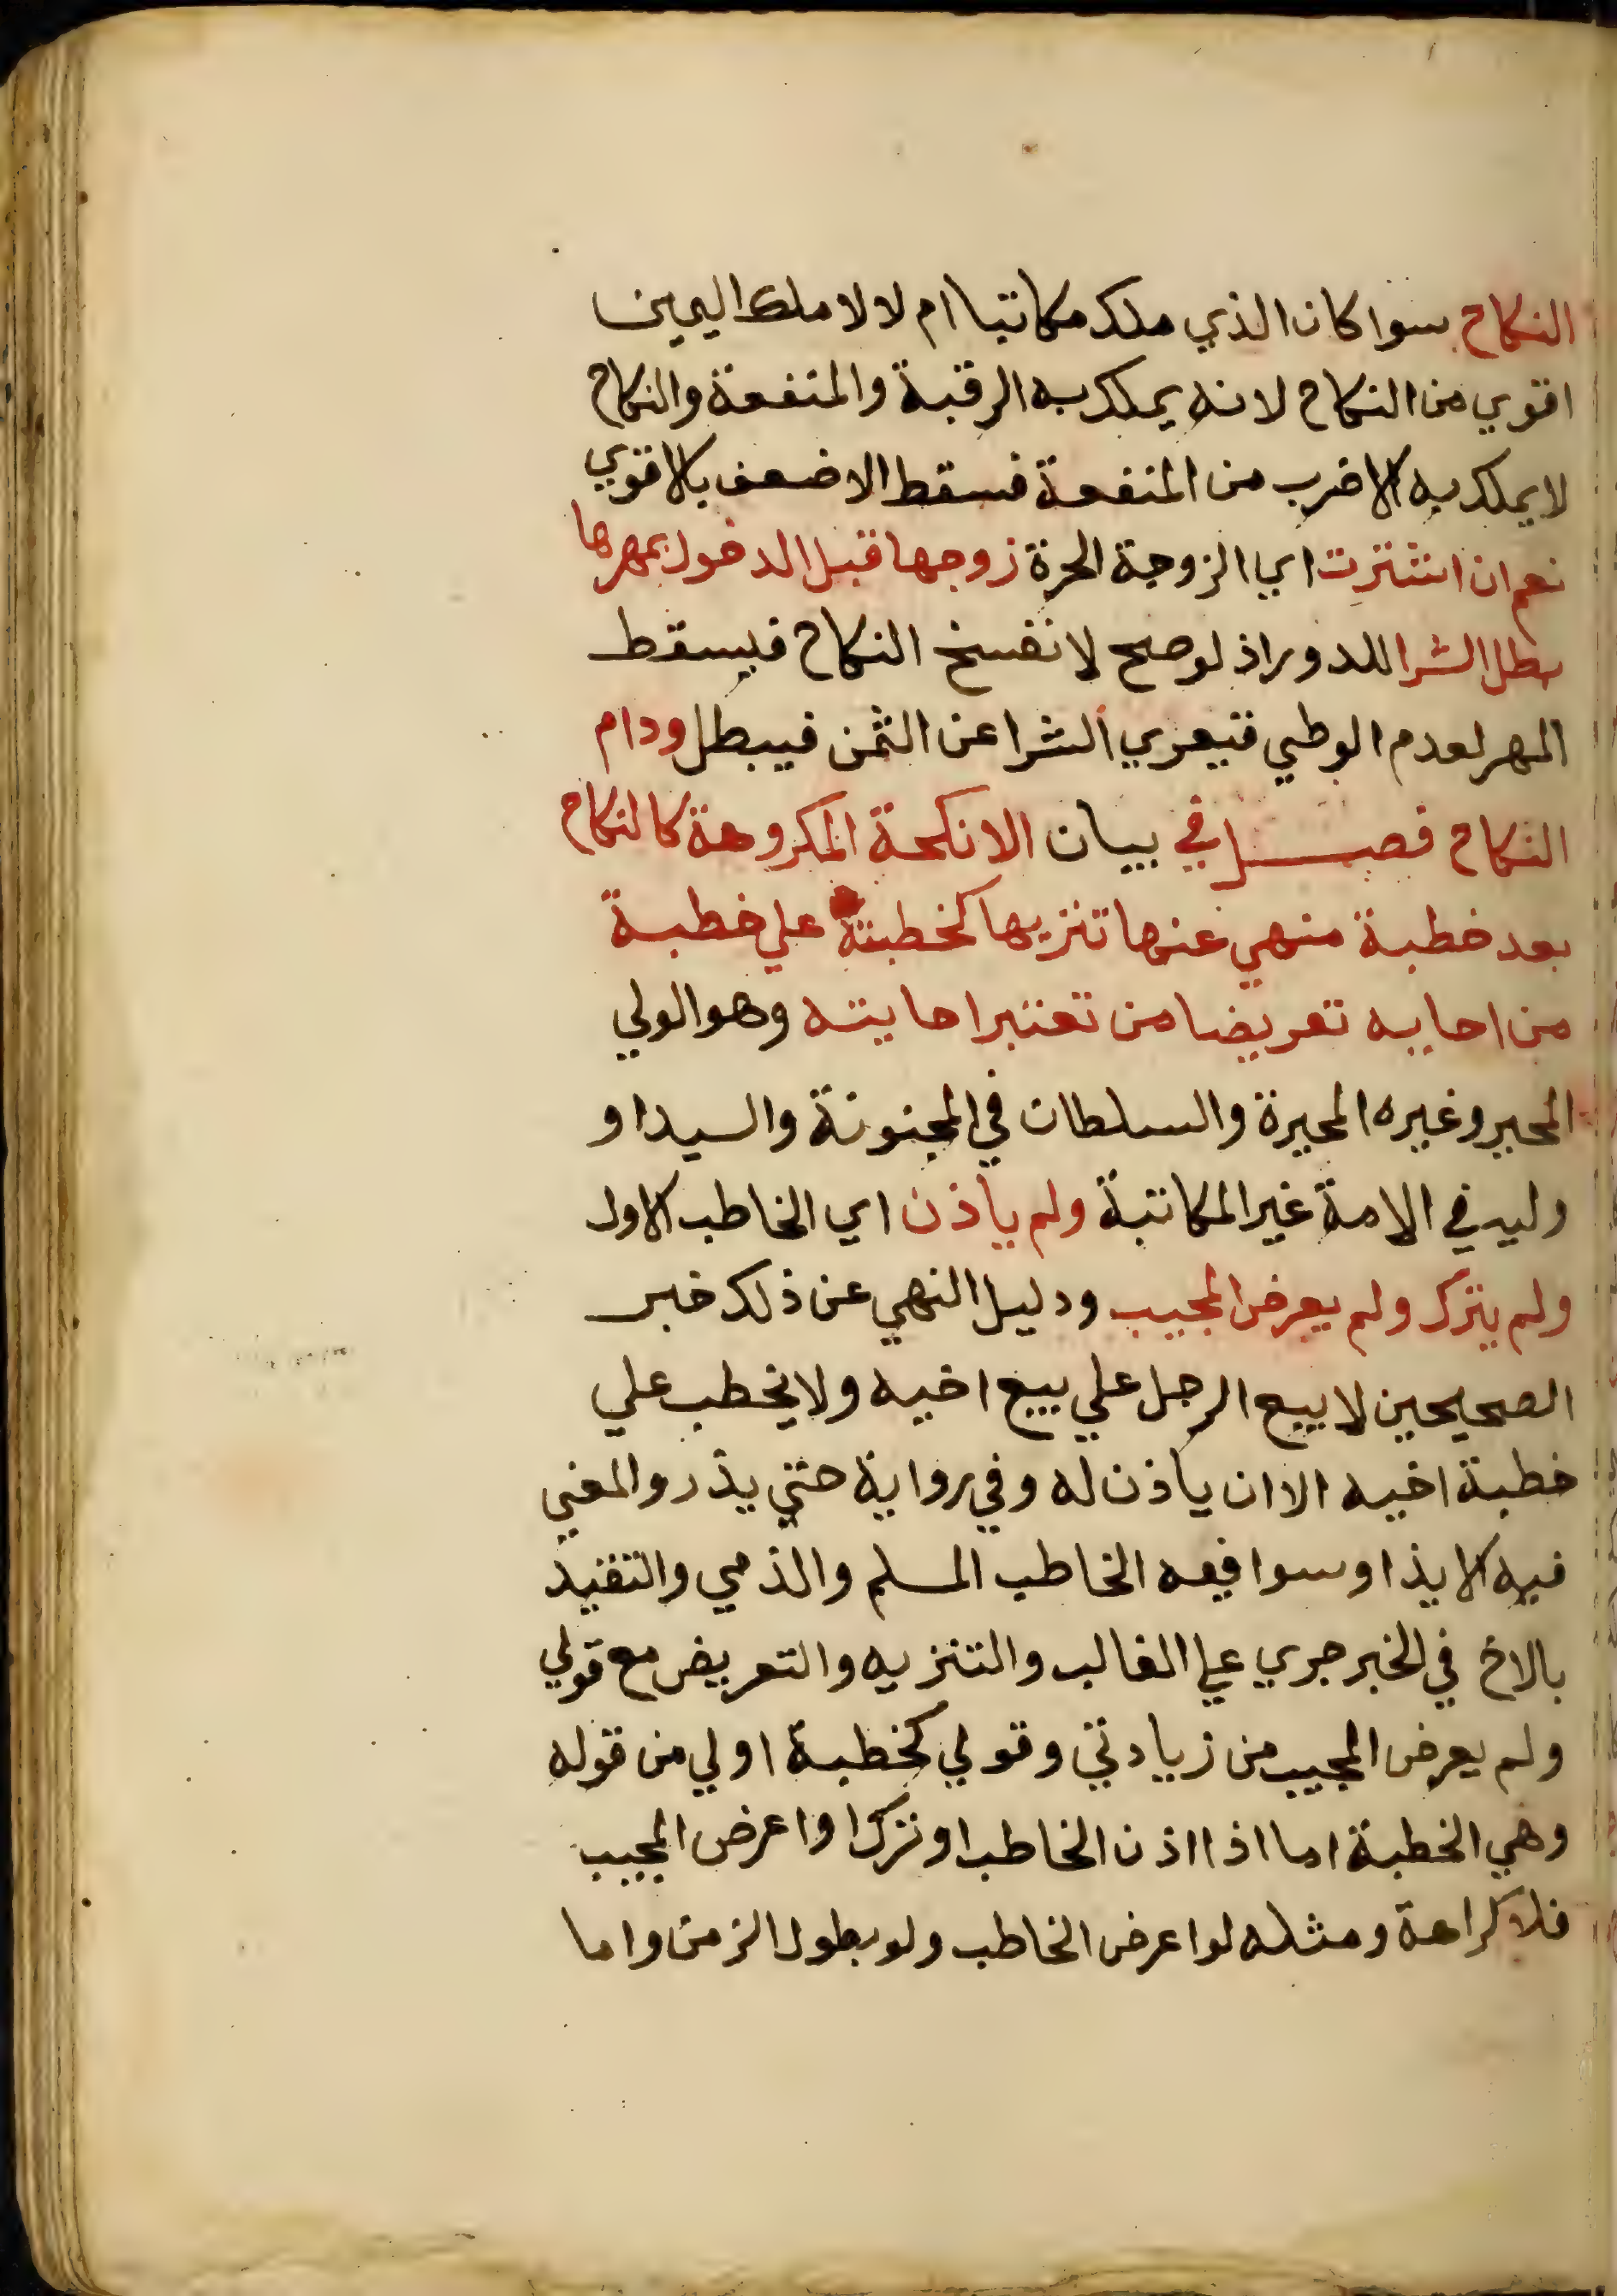 النكاح سوا كان الذي ملك مكاتبا ام لا لا ملك اليمين
اقوي من النكاح لانه يملك به الرقبة والمنفعة والنكاح
لا يملك به الا ضرب من المنفعة فسقط الاضعف بالاقوي
نعم ان اشترت اي الزوجة الحرة زوجها قبل الدخول بمهرها
بطل الشرا للدور اذ لو صح لانفسخ النكاح فيسقط
المهر لعدم الوطي فيعري الشرا عن الثمن فيبطل ودام
النكاح فصل في بيان الانكحة المكروهة كالنكاح
بعد خطبة منهي عنها تنزيها كخطبته علي خطبة
من اجابه تعريضا من تعتبر اجابته وهو الولي
المجبر وغيره المجبرة والسلطان في المجنونة والسيد او
وليه في الامة غير المكاتبة ولم ياذن اي الخاطب الاول
ولم يترك ولم يعرض المجيب ودليل النهي عن ذلك خبر
الصحيحين لا يبيع الرجل علي بيع اخيه ولا يخطب علي
خطبة اخيه الا ان ياذن له وفي رواية حتي يذر والمعني
فيه الايذا وسوا فيه الخاطب المسلم والذمي والتقييد
بالاخ في الخبر جري علي الغالب والتنزيه والتعريض مع قولي
ولم يعرض المجيب من زيادتي وقولي كخطبة اولي من قوله
وهي الخطبة اما اذا اذن الخاطب او ترك او اعرض المجيب
فلا كراهة ومثله لو اعرض الخاطب ولو بطول الزمن واما